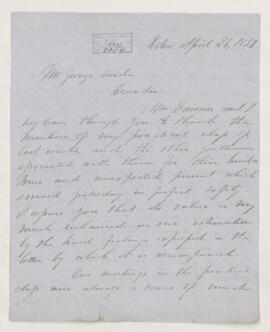 April 26, 18
Mr George
Dear Sir
Mrs Dawson and I
beg leave through you to thank the
members of my practical class of
last winter and the other gentlemen
associated with them for their handsome
and unexpected present which
arrived yesterday in perfect safety.
I assure you that its value is very
much enhanced in our estimation
by the kind feelings expressed in the
letter by which it is accompanied
Our meetings in the practical
class were always a source of much